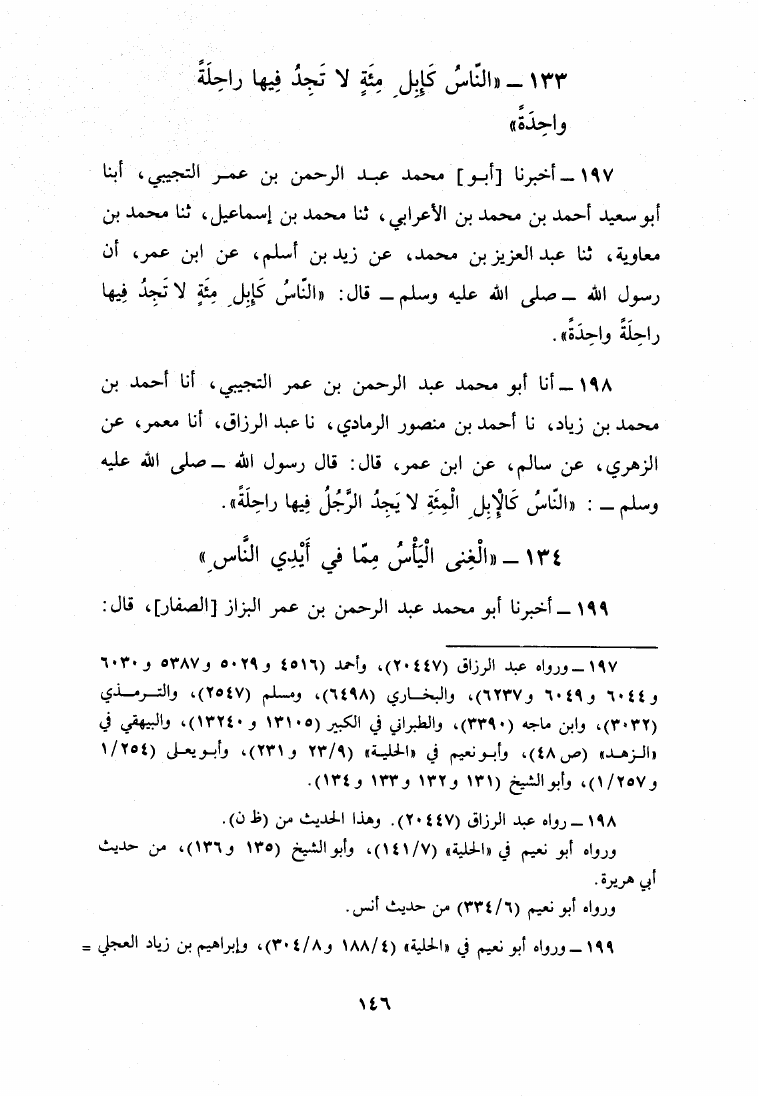 ١٣٣ ــ «النَّاسُ كَإِبِلٍ مِئَةٍ لا تَجِدُ فِيها راحِلَةً
واحِدَةً»
١٩٧ ــ أخبرنا [أبو] محمد عبد الرحمن بن عمر التجيبي، أبنا
أبو سعيد أحمد بن محمد بن الأعرابي، ثنا محمد بن إسماعيل، ثنا محمد بن
معاوية، ثنا عبد العزيز بن محمد، عن زيد بن أسلم، عن ابن عمر، أن
رسول الله ــ صلى الله عليه وسلم ــ قال: «النَّاسُ كَإِبِلٍ مِئَةٍ لا تَجِدُ فِيها
راحِلَةً واحِدَةً».
١٩٨ ــ أنا أبو محمد عبد الرحمن بن عمر التجيبي، أنا أحمد بن
محمد بن زياد، نا أحمد بن منصور الرمادي، نا عبد الرزاق، أنا معمر، عن
الزهري، عن سالم، عن ابن عمر، قال: قال رسول الله ــ صلى الله عليه
وسلم ــ : «النَّاسُ كَالْإِبِلِ الْمِئَةِ لا يَجِدُ الرَّجُلُ فِيها راحِلَةً».
١٣٤ ــ «الْغِنى الْيَأْسُ مِمّا في أَيْدِي النَّاسِ»
١٩٩ ــ أخبرنا أبو محمد عبد الرحمن بن عمر البزاز [الصفار]، قال:
١٩٧ ــ ورواه عبد الرزاق (٢٠٤٤٧)، وأحمد (٤٥١٦ و ٥٠٢٩ و ٥٣٨٧ و ٦٠٣٠
و ٦٠٤٤ و ٦٠٤٩ و ٦٢٣٧)، والبخاري (٦٤٩٨)، ومسلم (٢٥٤٧)، والترمذي
(٣٠٣٢)، وابن ماجه (٣٣٩٠)، والطبراني في الكبير (١٣١٠٥ و ١٣٢٤٠)، والبيهقي في
«الزهد» (ص ٤٨)، وأبو نعيم في «الحلية» (٢٣/٩ و ٢٣١)، وأبو يعلى (١/٢٥٤
و ١/٢٥٧)، وأبو الشيخ (١٣١ و ١٣٢ و ١٣٣ و ١٣٤).
١٩٨ ــ رواه عبد الرزاق (٢٠٤٤٧). وهذا الحديث من (ظ ن).
ورواه أبو نعيم في «الحلية» (١٤١/٧)، وأبو الشيخ (١٣٥ و ١٣٦)، من حديث
أبي هريرة.
ورواه أبو نعيم (٣٣٤/٦) من حديث أنس.
١٩٩ ــ ورواه أبو نعيم في «الحلية» (١٨٨/٤ و ٣٠٤/٨)، وإبراهيم بن زياد العجلي =
١٤٦